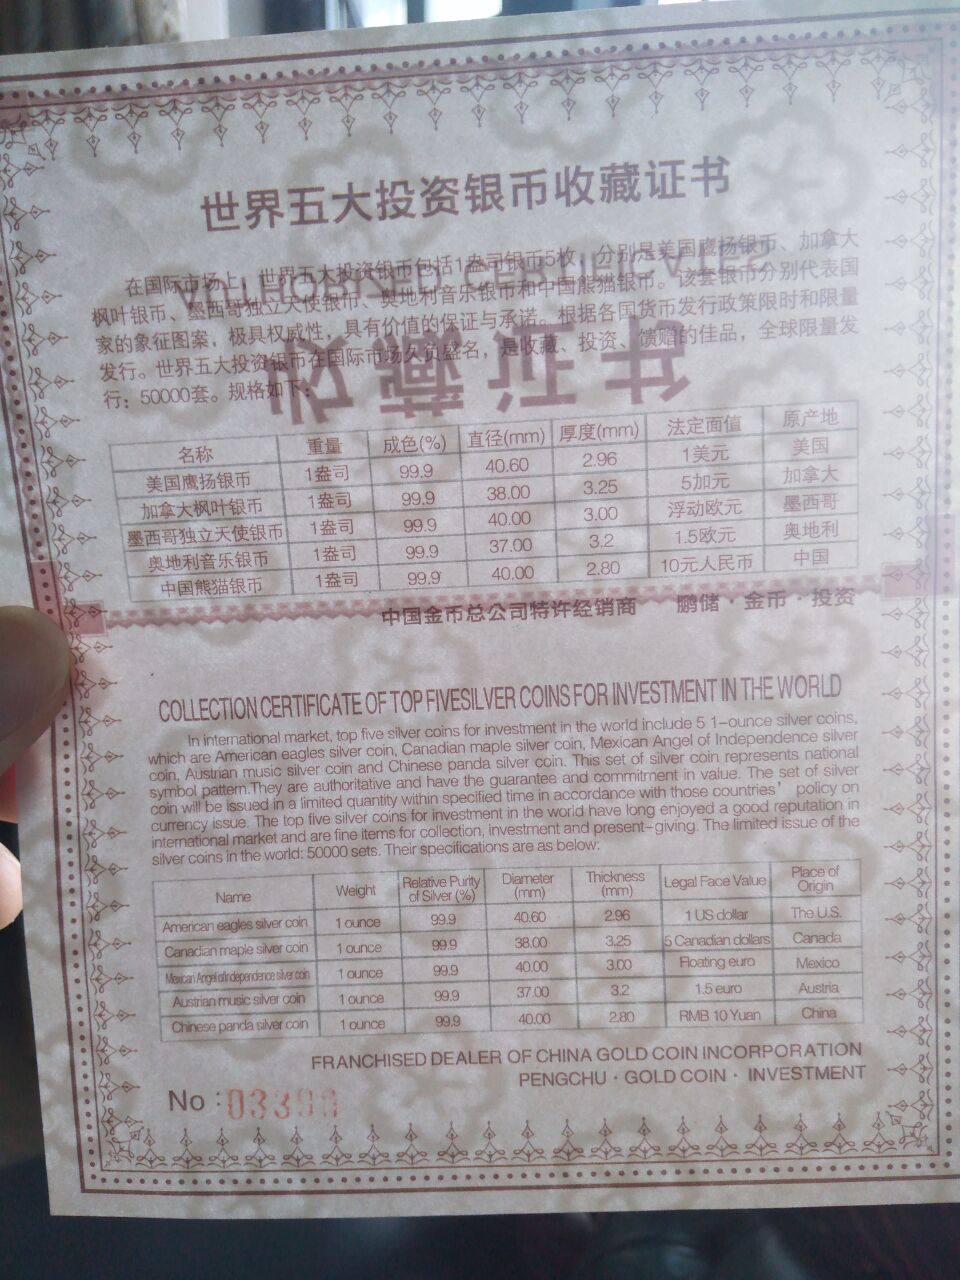 世界五大投资银币收藏证书
在国际市场上，世界五大投资银币包括1盎司银币5枚，分别是美国鹰扬银币、加拿大
枫叶银币、墨西哥独立天使银币、奥地利音乐银币和中国熊猫银币。该套银币分别代表国
家的象征图案，极具权威性，具有价值的保证与承诺。根据各国货币发行政策限时和限量
发行。世界五大投资银币在国际市场久负盛名，是收藏、投资、馈赠的佳品，全球限量发
行：50000套。规格如下：
AUTHORIZED CERTIFICATES
收藏证书
名称 重量 成色(%) 直径(mm) 厚度(mm) 法定面值 原产地
美国鹰扬银币 1盎司 99.9 40.60 2.96 1美元 美国
加拿大枫叶银币 1盎司 99.9 38.00 3.25 5加元 加拿大
墨西哥独立天使银币 1盎司 99.9 40.00 3.00 浮动欧元 墨西哥
奥地利音乐银币 1盎司 99.9 37.00 3.2 1.5欧元 奥地利
中国熊猫银币 1盎司 99.9 40.00 2.80 10元人民币 中国
中国金币总公司特许经销商 鹏储·金币·投资
COLLECTION CERTIFICATE OF TOP FIVESILVER COINS FOR INVESTMENT IN THE WORLD
In international market, top five silver coins for investment in the world include 5 1-ounce silver coins,
which are American eagles silver coin, Canadian maple silver coin, Mexican Angel of Independence silver
coin, Austrian music silver coin and Chinese panda silver coin. This set of silver coin represents national
symbol pattern.They are authoritative and have the guarantee and commitment in value. The set of silver
coin will be issued in a limited quantity within specified time in accordance with those countries' policy on
currency issue. The top five silver coins for investment in the world have long enjoyed a good reputation in
international market and are fine items for collection, investment and present-giving. The limited issue of the
silver coins in the world: 50000 sets. Their specifications are as below:
Name Weight Relative Purity of Silver (%) Diameter (mm) Thickness (mm) Legal Face Value Place of Origin
American eagles silver coin 1 ounce 99.9 40.60 2.96 1 US dollar The U.S.
Canadian maple silver coin 1 ounce 99.9 38.00 3.25 5 Canadian dollars Canada
Mexican Angel of Independence silver coin 1 ounce 99.9 40.00 3.00 Floating euro Mexico
Austrian music silver coin 1 ounce 99.9 37.00 3.2 1.5 euro Austria
Chinese panda silver coin 1 ounce 99.9 40.00 2.80 RMB 10 Yuan China
FRANCHISED DEALER OF CHINA GOLD COIN INCORPORATION
PENGCHU · GOLD COIN · INVESTMENT
No :